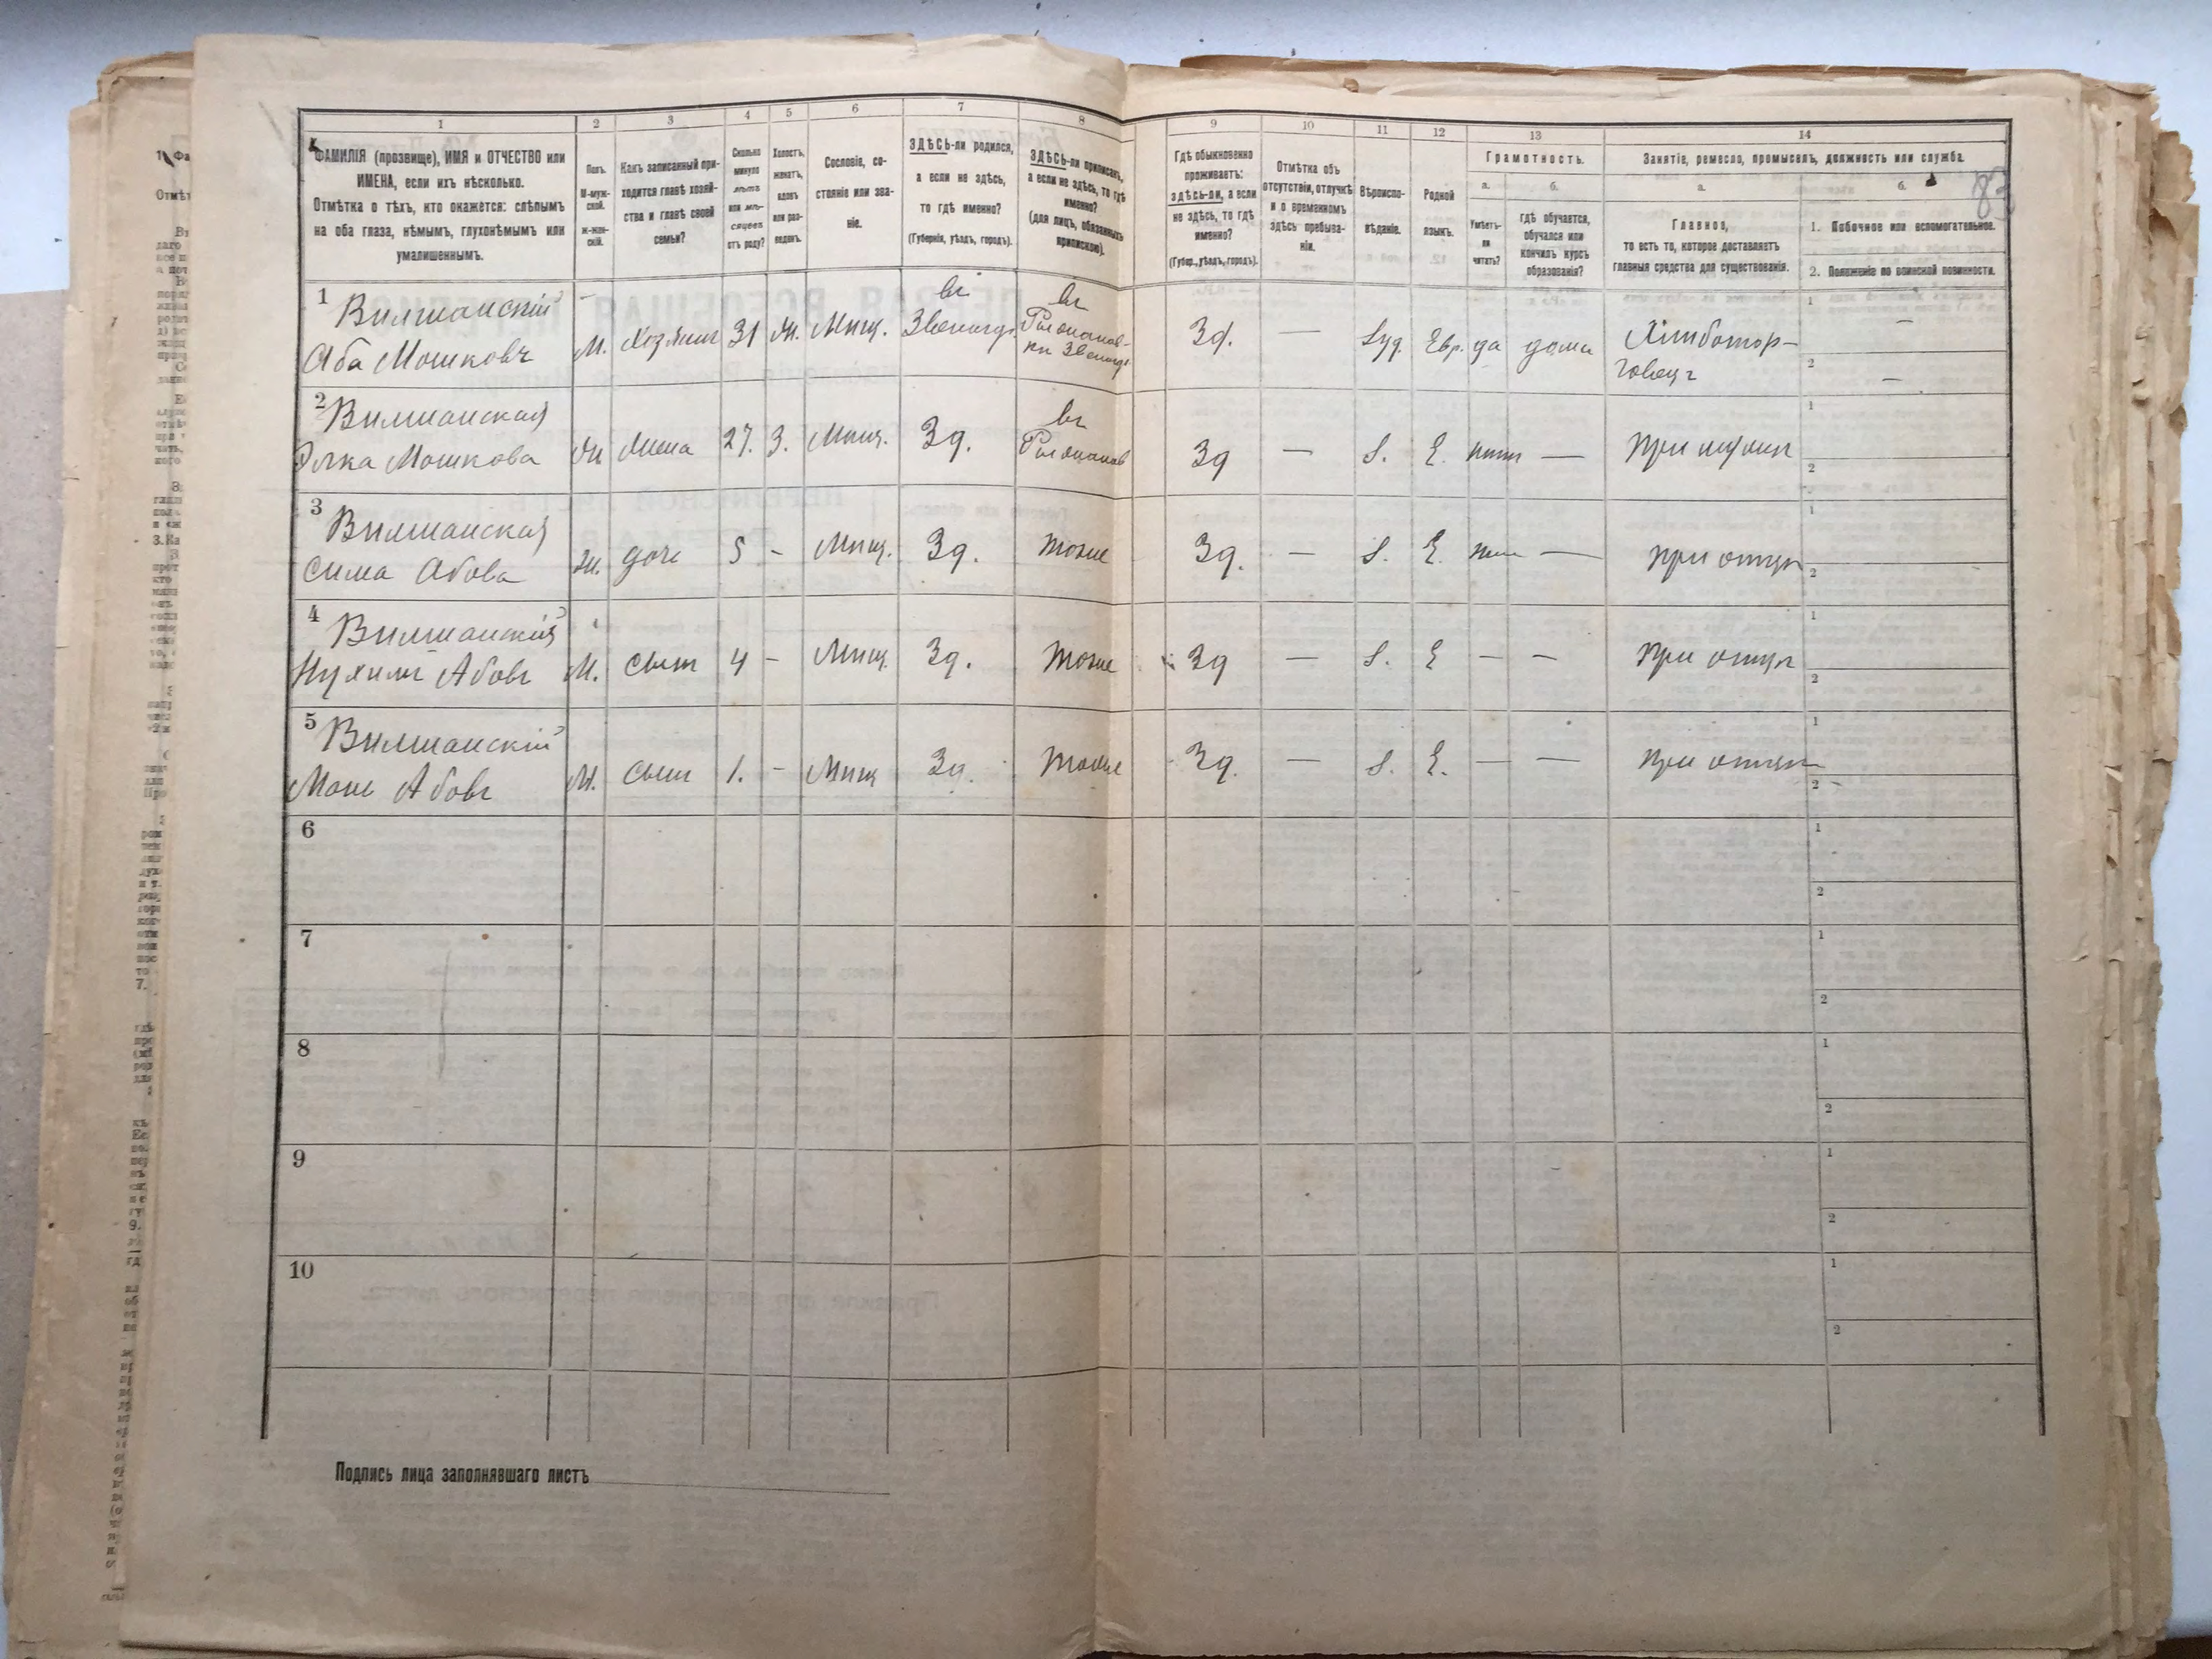 1 2 3 4 5 6 7 8 9 10 11 12 13 14
ФАМИЛІЯ (прозвище), ИМЯ и ОТЧЕСТВО или
ИМЕНА, если ихъ нѣсколько.
Отмѣтка о тѣхъ, кто окажется: слѣпымъ
на оба глаза, нѣмымъ, глухонѣмымъ или
умалишеннымъ.
Полъ.
М-муж-
ской.
ж-жен-
скій.
Какъ записанный при-
ходится главѣ хозяй-
ства и главѣ своей
семьи?
Сколько
минуло
лѣтъ
или мѣ-
сяцевъ
отъ роду?
Холостъ,
женатъ,
вдовъ
или раз-
веденъ.
Сословіе, со-
стояніе или зва-
ніе.
ЗДѢСЬ-ли родился,
а если не здѣсь,
то гдѣ именно?
(Губернія, уѣздъ, городъ).
ЗДѢСЬ-ли приписанъ,
а если не здѣсь, то гдѣ
именно?
(для лицъ, обязанныхъ
припискою).
Гдѣ обыкновенно
проживаетъ:
здѣсь-ли, а если
не здѣсь, то гдѣ
именно?
(Губер., уѣздъ, городъ).
Отмѣтка объ
отсутствіи, отлучкѣ
и о временномъ
здѣсь пребыва-
ніи.
Вѣроиспо-
вѣданіе.
Родной
языкъ.
Грамотность.
а.
Умѣетъ-
ли
читать?
б.
гдѣ обучается,
обучался или
кончилъ курсъ
образованія?
Занятіе, ремесло, промыселъ, должность или служба.
а.
Главное,
то есть то, которое доставляетъ
главныя средства для существованія.
б.
1. Побочное или вспомогательное.
2. Положеніе по воинской повинности.
83
1 Вилшанскій
Аба Мошковъ
М. Хозяинъ 31 Ж. Мѣщ.
въ
Звенигр.
въ
Зд. — Іуд. Евр. да дома
Хлѣботор-
говецъ
1 —
2 —
2 Вилшанская
Мошкова
Ж Жена 27. З. Мѣщ. Зд.
въ
Зд — І. Е. нѣтъ — При мужѣ
1
2
3 Вилшанская
Сима Абова
Ж. дочь 5 - Мѣщ. Зд. тоже Зд. — І. Е. нѣтъ — при отцѣ
1
2
4 Вилшанскій
Нухимъ Абовъ
М. Сынъ 4 - Мѣщ. Зд. тоже Зд — І. Е — — При отцѣ
1
2
5 Вилшанскій
Абовъ
М. Сынъ 1. - Мѣщ Зд. тоже Зд. — І. Е. — — При отцѣ
1
2
6
1
2
7
1
2
8
1
2
9
1
2
10
1
2
Подпись лица заполнявшаго листъ